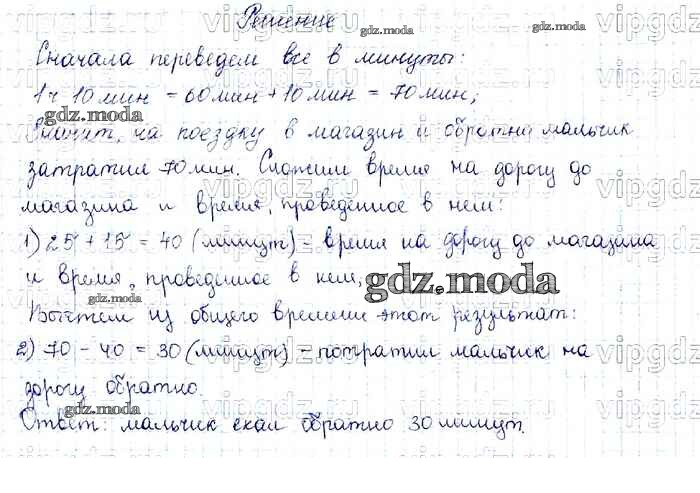 Решение
Сначала переведем все в минуты:
1ч 10мин = 60мин + 10мин = 70мин;
Значит, на поездку в магазин и обратно мальчик
затратил 70мин. Сложим время на дорогу до
магазина и время, проведенное в нем:
1) 25 + 15 = 40 (минут) - время на дорогу до магазина
и время, проведенное в нем;
Вычтем из общего времени этот результат:
2) 70 - 40 = 30 (минут) - потратил мальчик на
дорогу обратно.
Ответ: мальчик ехал обратно 30 минут.
gdz.moda
gdz.moda
gdz.moda
gdz.moda
gdz.moda
gdz.moda
vipgdz